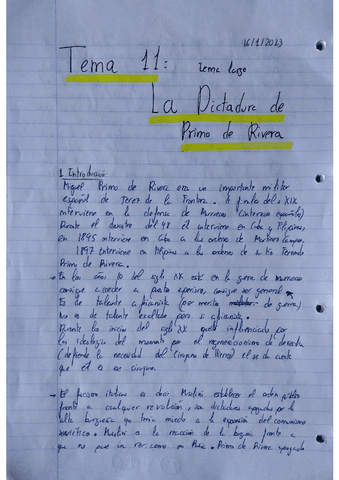 16/1/2023
Tema 11: Tema largo
La Dictadura de
Primo de Rivera
1. Introducción
Miguel Primo de Rivera era un importante militar
español de Jerez de la Frontera. A finales del s XIX
interviene en la defensa de Marruecos
Durante el desastre del 98 el interviene en Cuba y Filipinas,
en 1895 interviene en Cuba a las ordenes de Martínez Campos.
1897 interviene en Filipinas a la ordenes de su tío Fernando
Primo de Rivera.
→ En los años 10 del siglo XX está en la guerra de marruecos
consigue acceder a puestos superiores, consigue ser general
Es de talante africanista (por merito de guerra).
No es de talante exaltado pero si africanista.
Durante los inicios del siglo XX queda influenciado por
las ideologías del momento por el regeneracionismo de derecha
(defiende la necesidad del Cirujano de Hierro) el se da cuenta
que él es ese cirujano.
→ El fascismo italiano es decir Mussolini establece el orden público
frente a cualquier revolución, una dictadura apoyada por la
alta burguesía que tenía miedo a la expansión del comunismo
soviético. Mussolini es la reacción de la burguesía frente a
que no pase un como en Rusia. Primo de Rivera apoyado